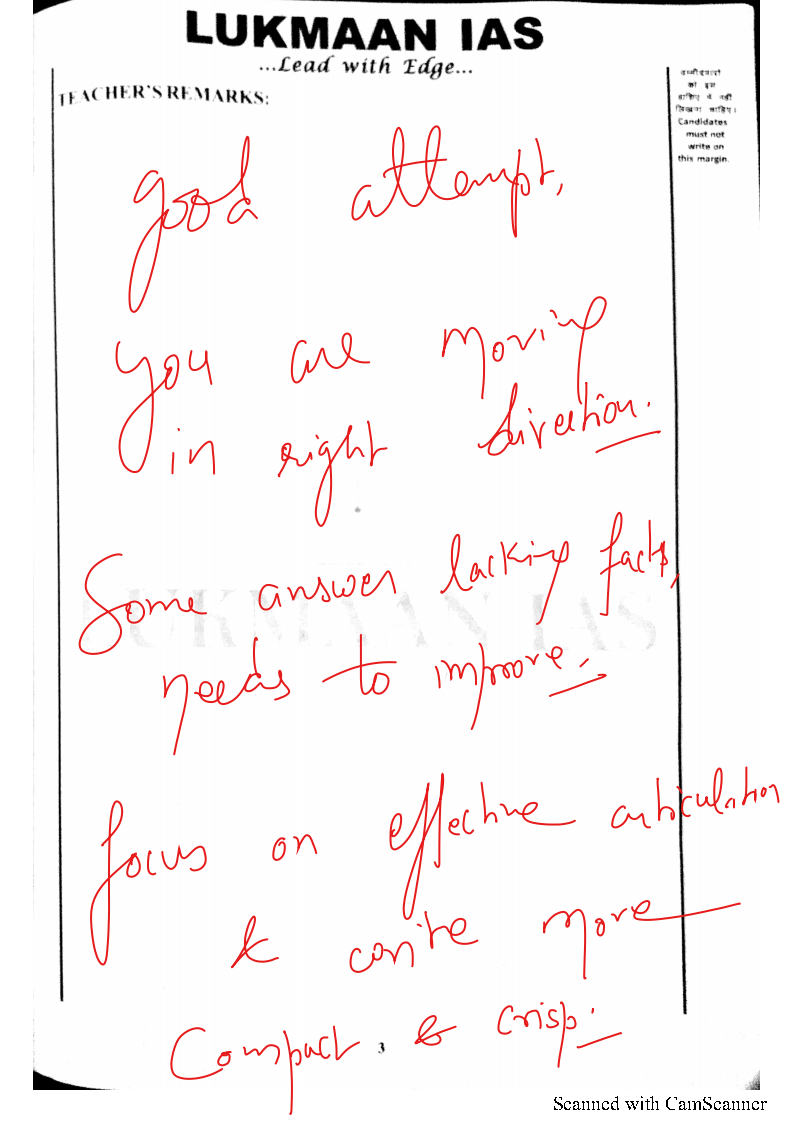 LUKMAAN IAS
...Lead with Edge...
TEACHER'S REMARKS:
उम्मीदवारों
को इस
हाशिए में नहीं
लिखना चाहिए।
Candidates
must not
write on
this margin.
good attempt,
you are moving
in right direction.
Some answer lacking facts,
LUKMAAN IAS
needs to improve.
focus on effective articulation
& write more
Compact & crisp.
3
Scanned with CamScanner